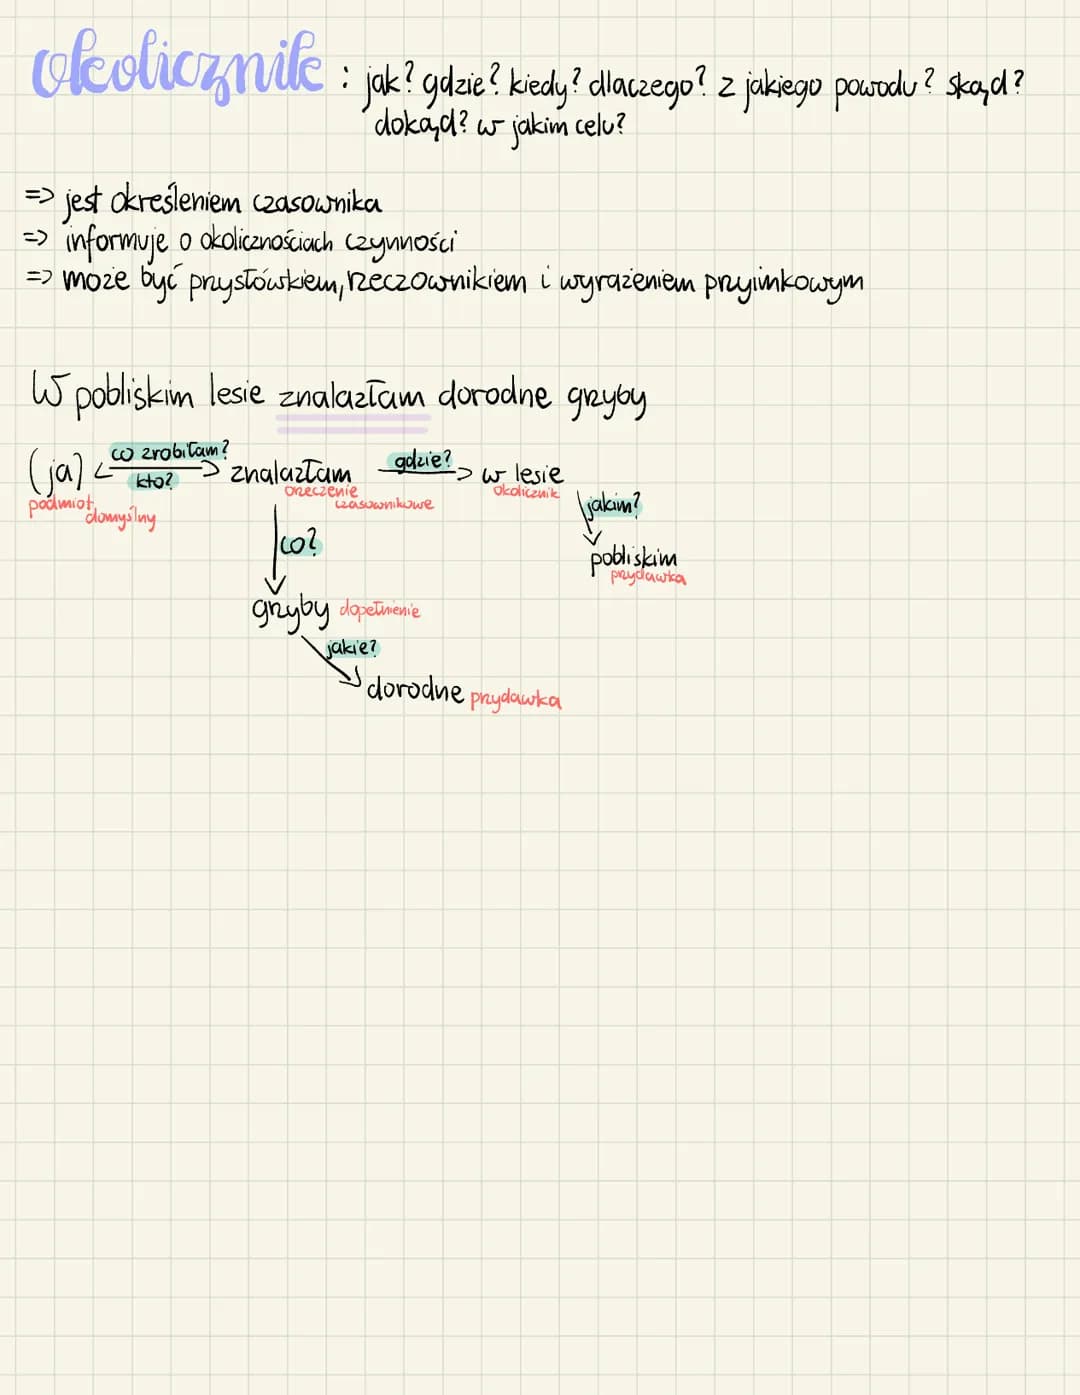 okolicznik : jak? gdzie? kiedy? dlaczego? z jakiego powodu? skąd?
dokąd? w jakim celu?
=> jest określeniem czasownika
=> informuje o okolicznościach czynności
=> może być przysłówkiem, rzeczownikiem i wyrażeniem przyimkowym
W pobliskim lesie znalazłam dorodne grzyby
(ja) co zrobiłam? kto? znalazłam gdzie? w lesie
podmiot domyślny orzeczenie czasownikowe okolicznik
jakim?
co?
pobliskim
przydawka
grzyby dopełnienie
jakie?
dorodne przydawka